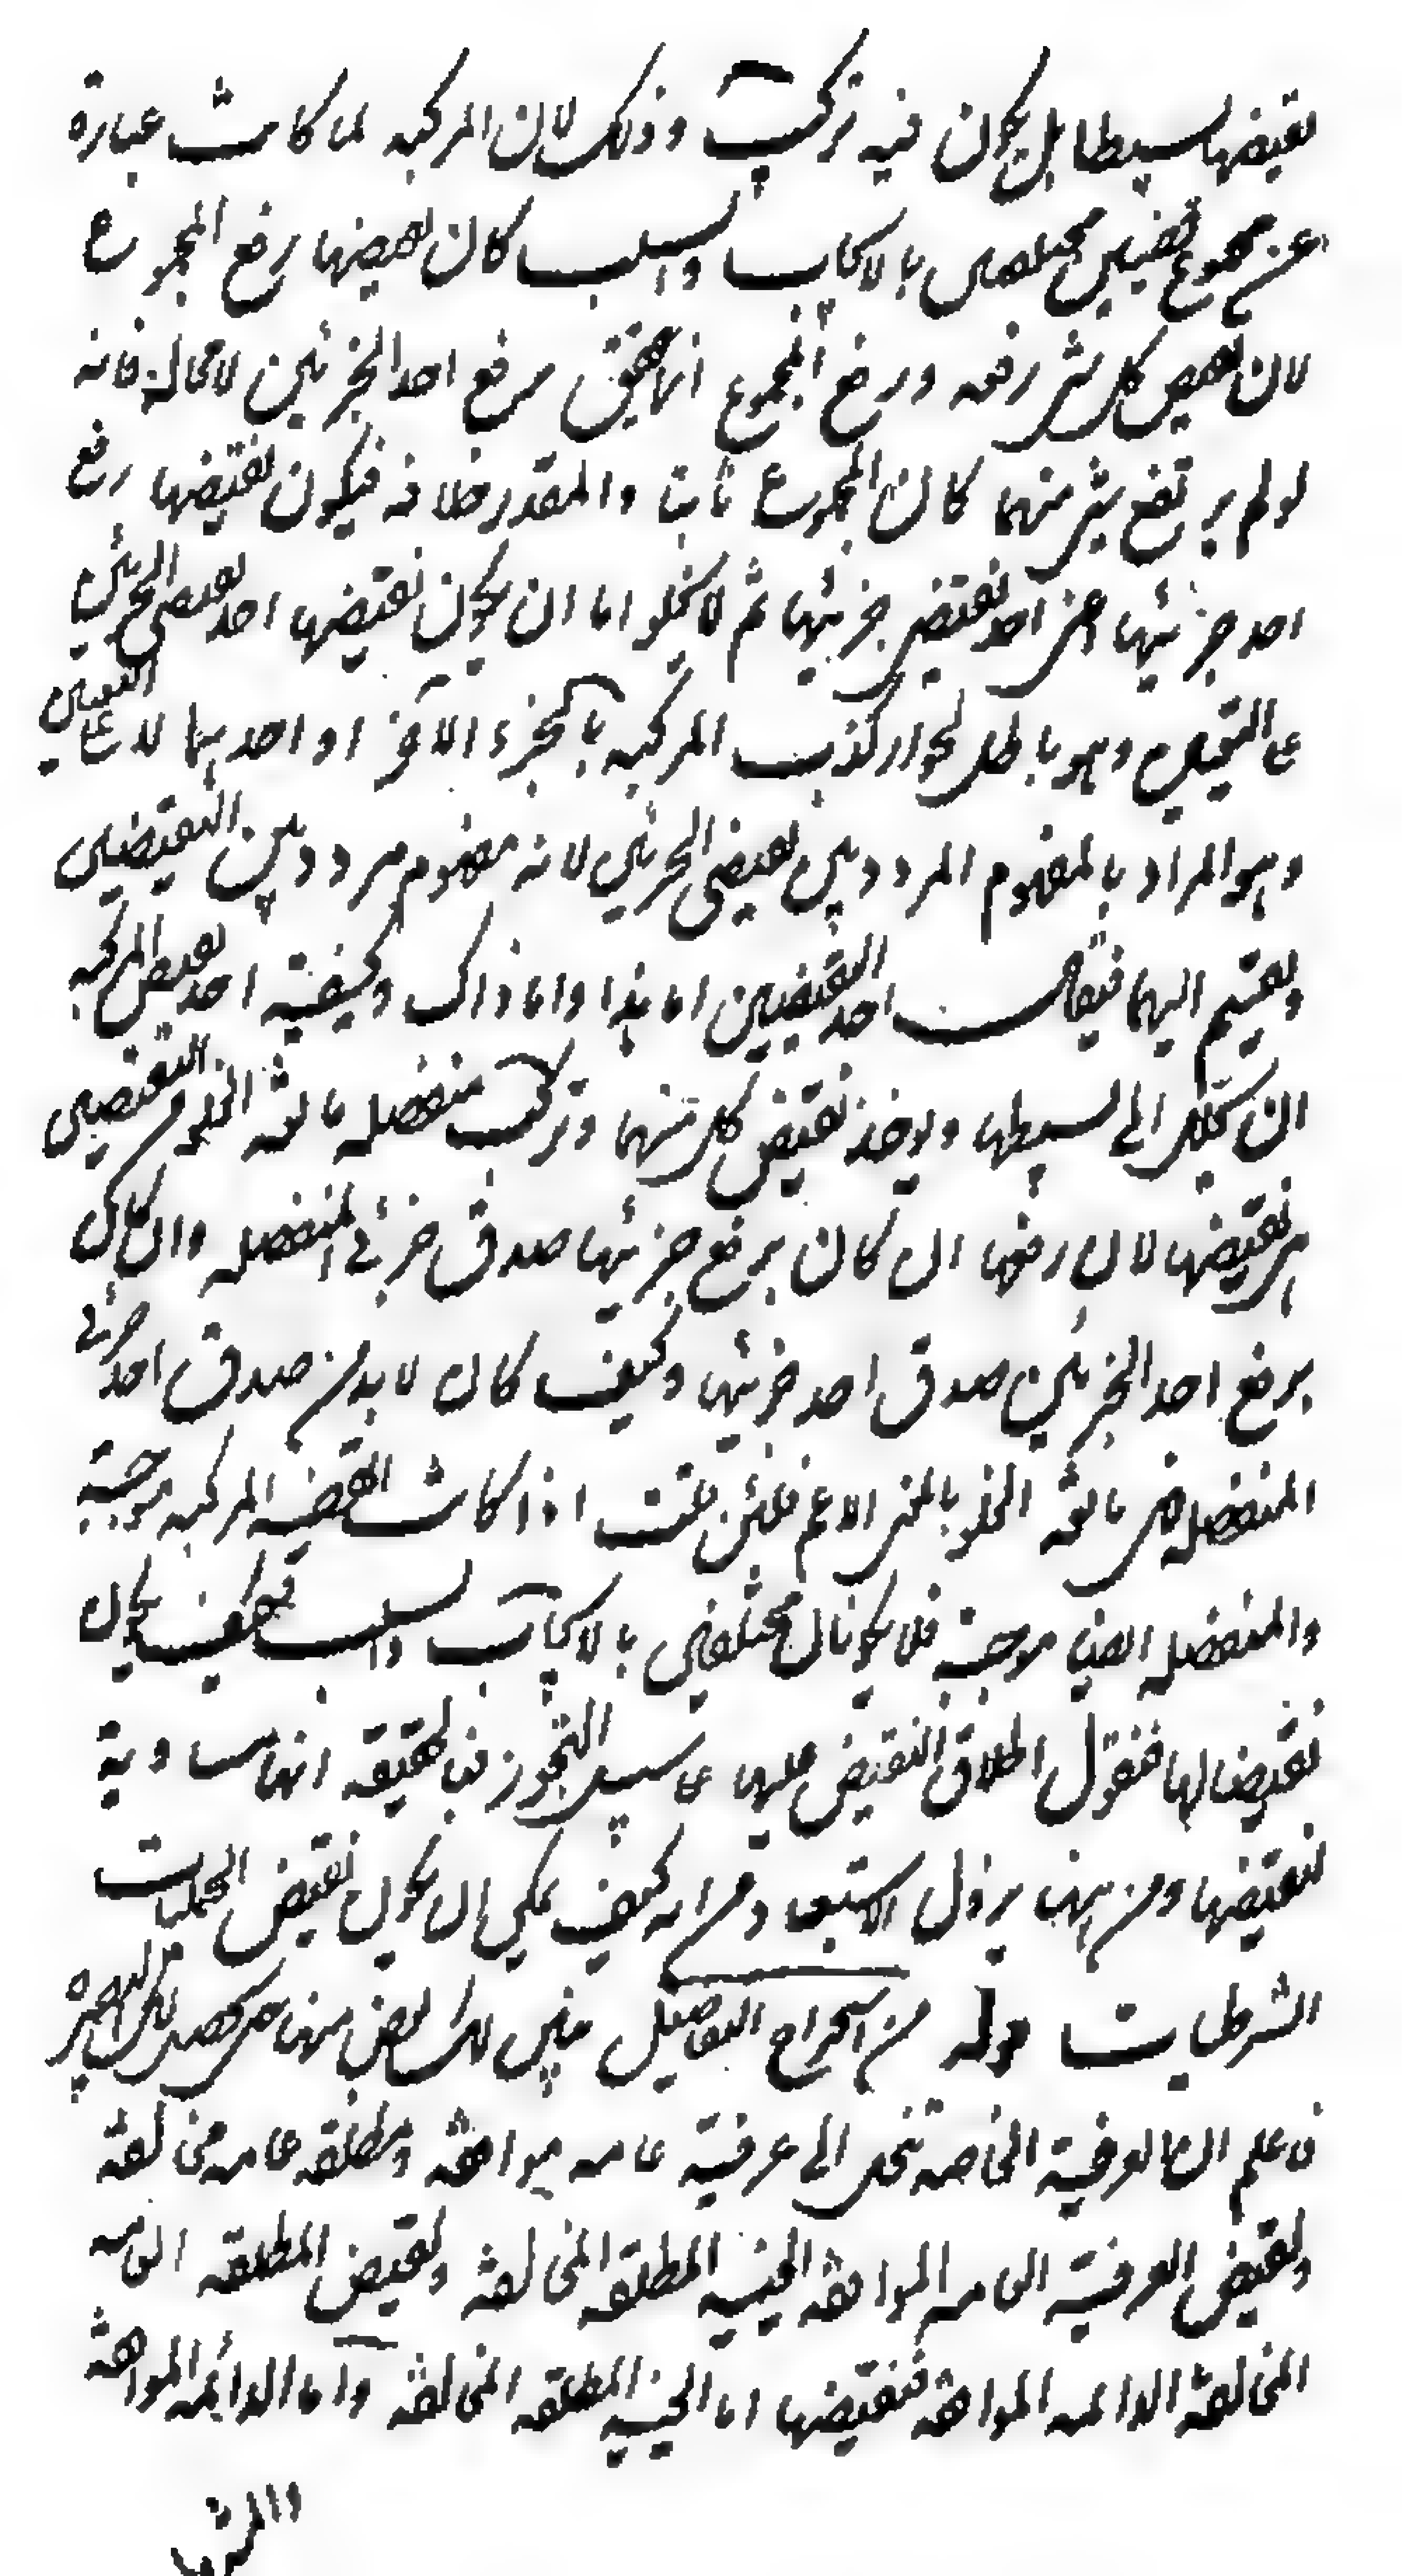 نقيضها بسيطا بل يكون فيه تركيب وذلك لان المركبه لما كانت عبارة
عن مجموع قضيتين مختلفتين بالايجاب والسلب كان نقيضها رفع المجموع
لان نقيض كل شئ رفعه ورفع المجموع انما يتحقق برفع احد الجزئين لا محاله فانه
لو لم يرتفع شئ منهما كان المجموع ثابتا والمقدر خلافه فيكون نقيضها رفع
احد جزئيها اعنى احد نقيضى جزئيها ثم لا يخلو اما ان يكون نقيضها احد نقيضى الجزئين
على التعيين وهو باطل لجواز كذب المركبه بالجزء الآخر او احدهما لا على التعيين
وهو المراد بالمفهوم المردد بين نقيضى الجزئين لانه مفهوم مردد بين النقيضين
ويقسم اليهما فيقال احد النقيضين اما هذا واما ذاك وكيفية اخذ نقيض المركبه
ان تحلل الى بسيطها ويوخذ نقيض كل منهما وتركب منفصله مانعة الخلو من النقيضين
هى نقيضها لان رفعها ان كان برفع جزئيها صدق جزئى المنفصله وان كان
برفع احد الجزئين صدق احد جزئيها وكيف كان لا بد من صدق احد جزئى
المنفصله فهى مانعة الخلو بالمعنى الاعم فلئن قلت اذا كانت القضيه المركبه موجبة
والمنفصله ايضا موجبة فلا يكونان مختلفين بالايجاب والسلب فكيف يكون
نقيضا لها فنقول اطلاق النقيض عليها على سبيل التجوز فبالحقيقه انها مساوية
لنقيضها ومن ههنا يزول الاستبعاد من انه كيف يمكن ان يكون نقيض الحمليات
الشرطيات قوله من استخراج التفاصيل فبين لك بعض منها حتى يحصل لك البصيره
فاعلم ان العرفية الخاصه تنحل الى عرفية عامه موافقة ومطلقه عامه مخالفة
ونقيض العرفية العامه الموافقه الحينيه المطلقه المخالفة ونقيض المطلقه العامه
المخالفة الدائمه الموافقة فنقيضها اما الحينيه المطلقه المخالفة واما الدائمه الموافقة